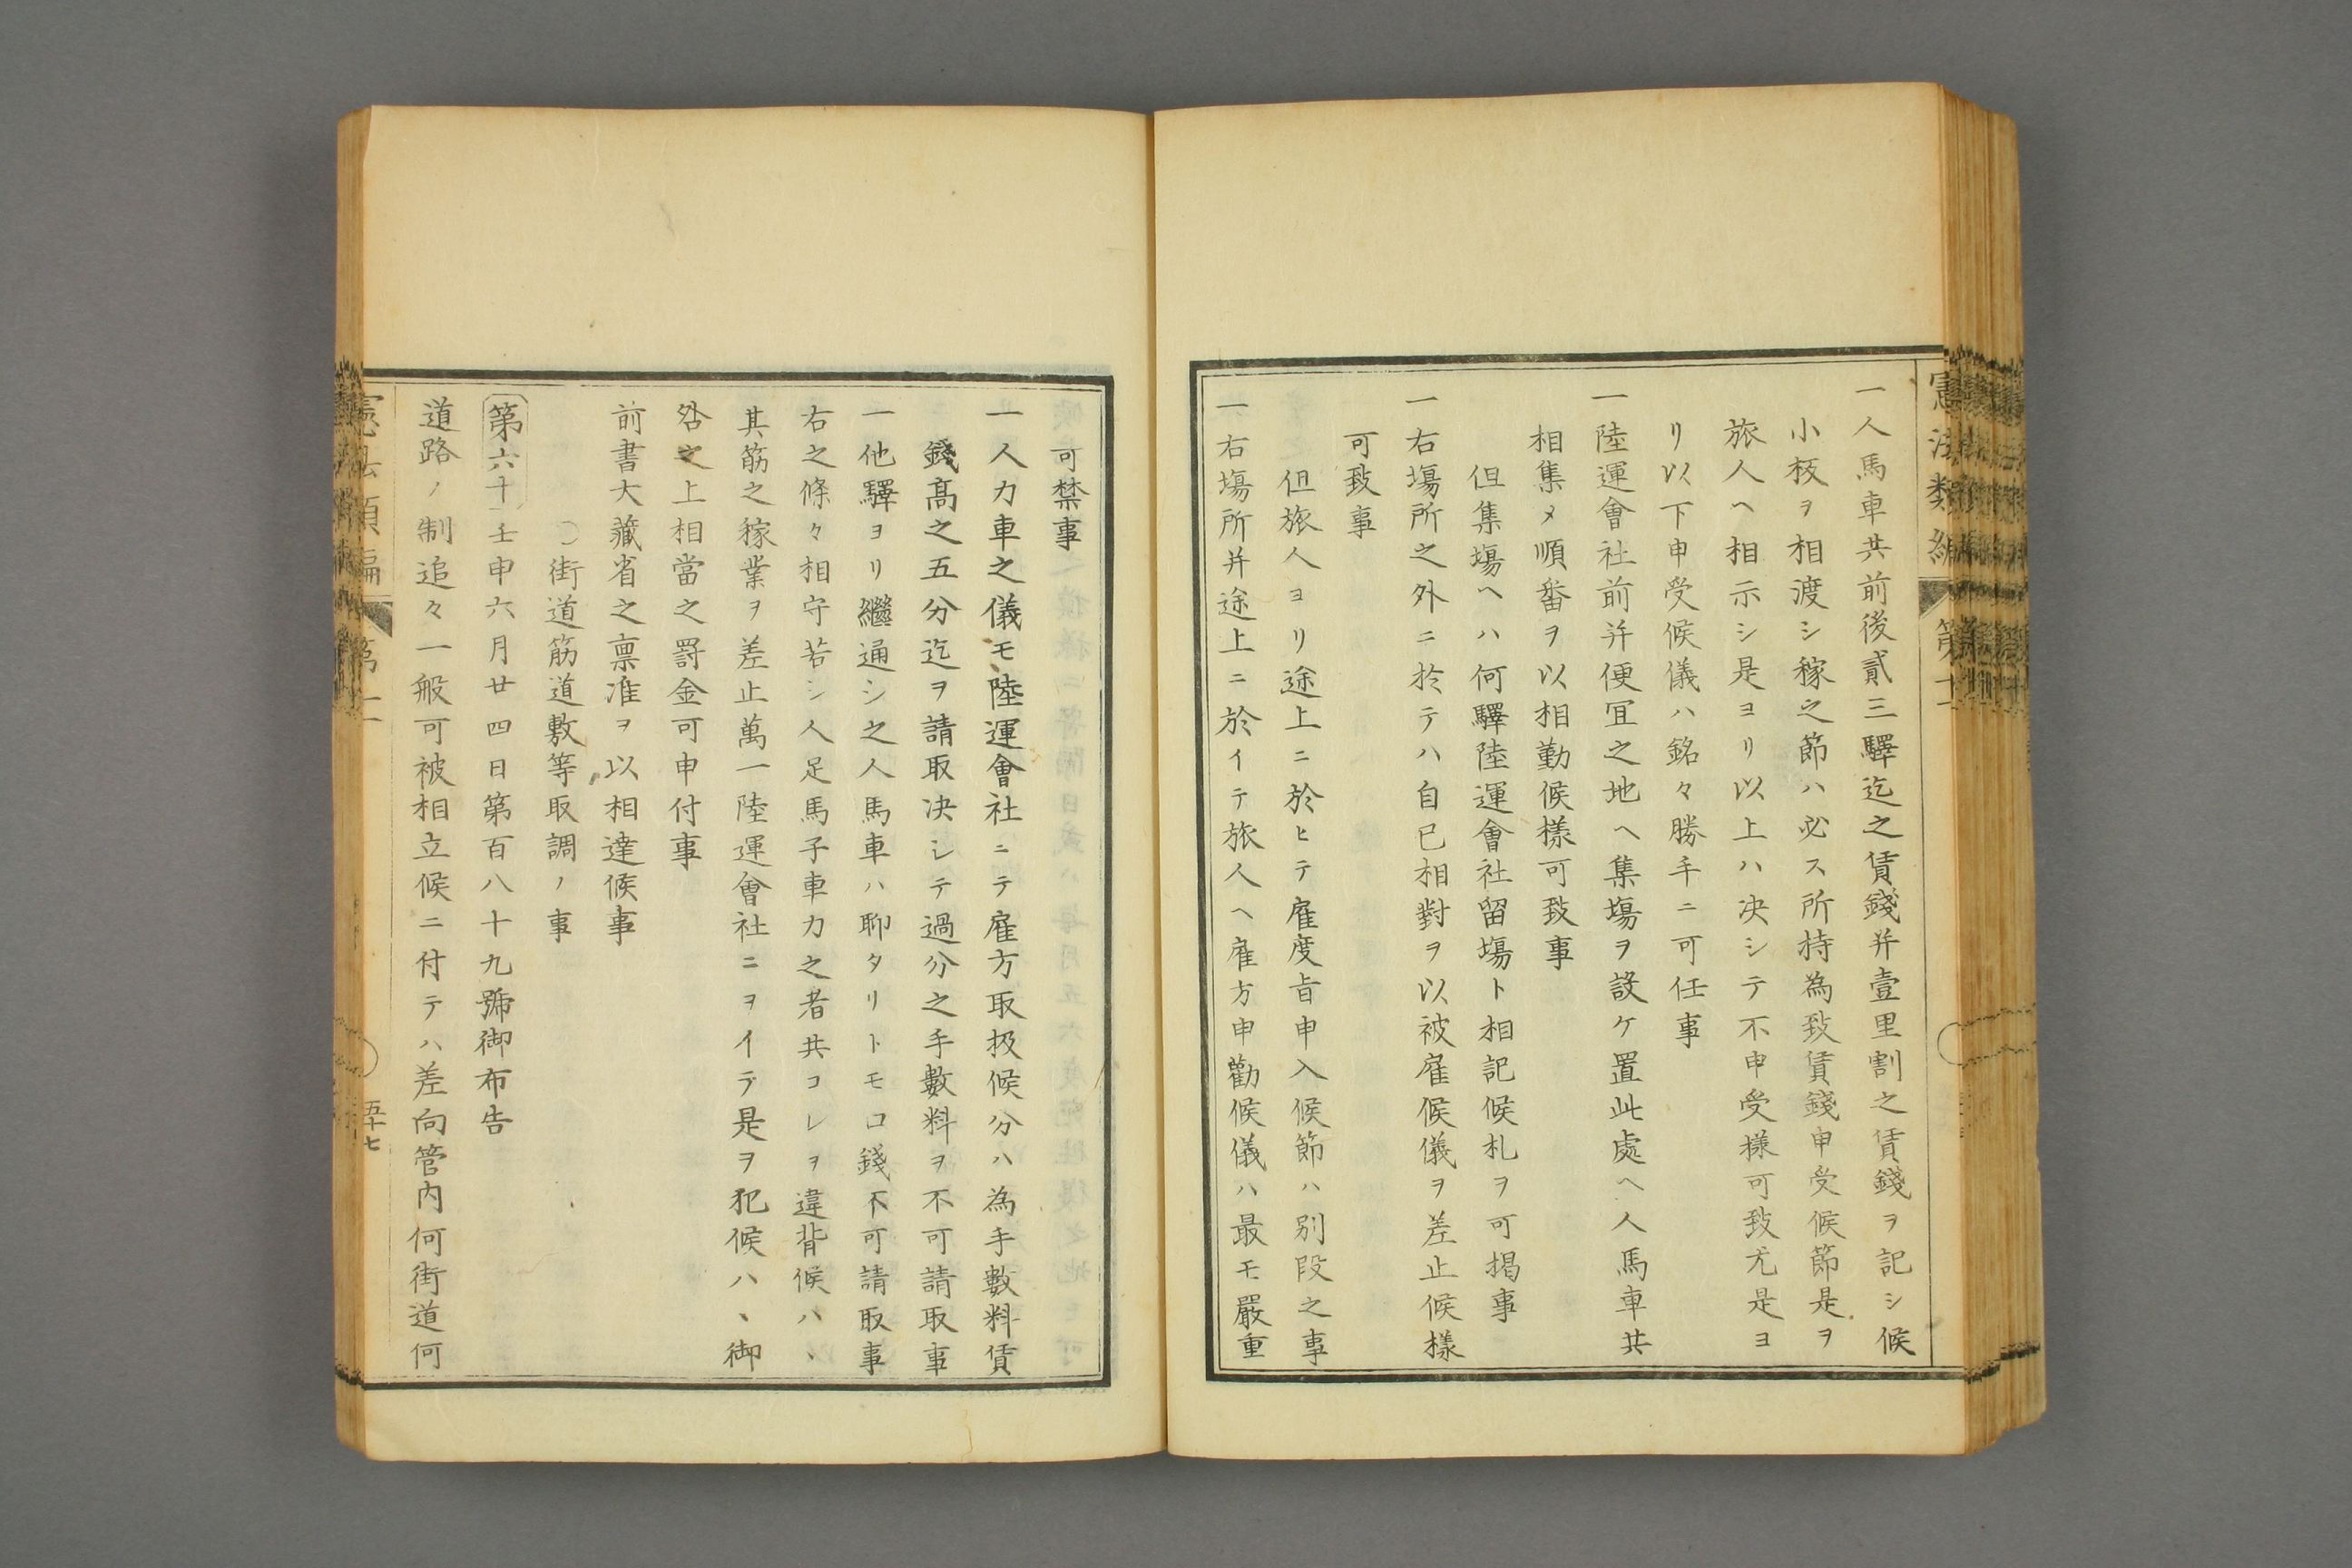 憲法類編 第十
一人馬車共前後貳三驛迄之賃錢并壹里割之賃錢ヲ記シ候
小板ヲ相渡シ稼之節ハ必ス所持為致賃錢申受候節是ヲ
旅人ヘ相示シ是ヨリ以上ハ决シテ不申受様可致尤是ヨ
リ以下申受候儀ハ銘々勝手ニ可任事
一陸運會社前并便冝之地ヘ集塲ヲ設ケ置此處ヘ人馬車共
相集メ順番ヲ以相勤候様可致事
但集塲ヘハ何驛陸運會社留塲ト相記候札ヲ可掲事
一右塲所之外ニ於テハ自己相對ヲ以被雇候儀ヲ差止候様
可致事
但旅人ヨリ途上ニ於ヒテ雇度旨申入候節ハ別段之事
一右塲所并途上ニ於イテ旅人ヘ雇方申勸候儀ハ最モ嚴重
可禁事
一人力車之儀モ陸運會社ニテ雇方取扱候分ハ為手數料賃
錢髙之五分迄ヲ請取决シテ過分之手數料ヲ不可請取事
一他驛ヨリ繼通シ之人馬車ハ聊タリトモ口錢不可請取事
右之條々相守若シ人足馬子車力之者共コレヲ違背候ハヽ
其筋之稼業ヲ差止萬一陸運會社ニヲイテ是ヲ犯候ハヽ御
咎之上相當之罸金可申付事
前書大藏省之禀准ヲ以相達候事
〇街道筋道敷等取調ノ事
第六十 壬申六月廿四日第百八十九號御布告
道路ノ制追々一般可被相立候ニ付テハ差向管内何街道何
憲法類編 第十 五十七